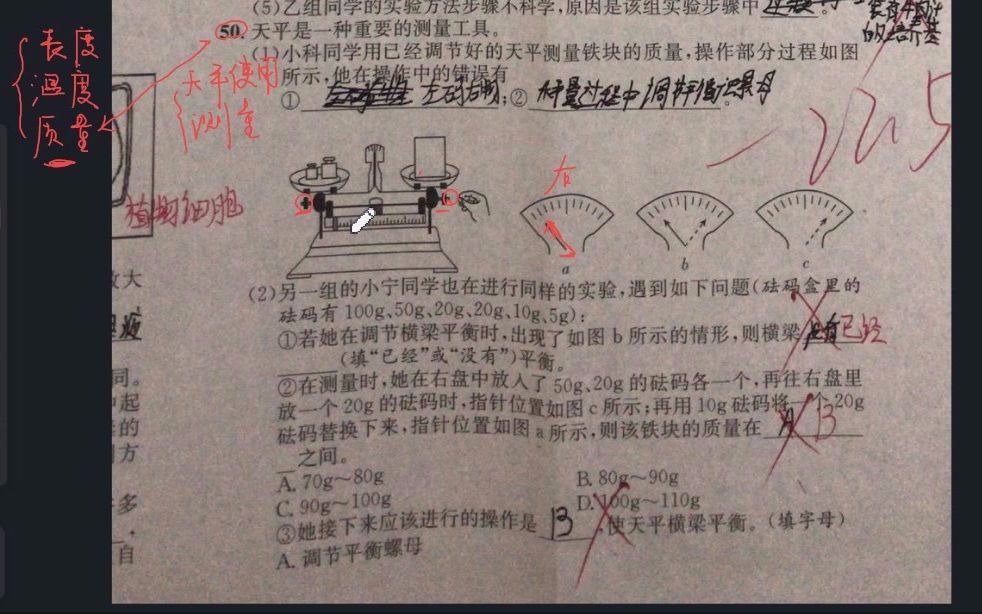 (5)乙组同学的实验方法步骤不科学,原因是该组实验步骤中
50.天平是一种重要的测量工具。
(1)小科同学用已经调节好的天平测量铁块的质量,操作部分过程如图
所示,他在操作中的错误有
① 左码右物;②
长度
温度
质量
天平使用
测量
植物细胞
右
a
b
c
(2)另一组的小宁同学也在进行同样的实验,遇到如下问题(砝码盒里的
砝码有100g、50g、20g、20g、10g、5g):
①若她在调节横梁平衡时,出现了如图b所示的情形,则横梁 已经
(填“已经”或“没有”)平衡。
②在测量时,她在右盘中放入了50g、20g的砝码各一个,再往右盘里
放一个20g的砝码时,指针位置如图c所示;再用10g砝码将一个20g
砝码替换下来,指针位置如图a所示,则该铁块的质量在 B
之间。
A. 70g～80g
B. 80g～90g
C. 90g～100g
D. 100g～110g
③她接下来应该进行的操作是 B ,使天平横梁平衡。(填字母)
A. 调节平衡螺母
放大
同。
起
的
方
多
自